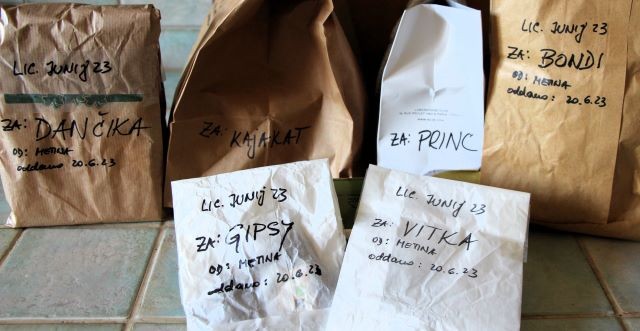 LIC. JUNIJ 23
ZA: DANČIKA
OD: METINA
oddano: 20.6.23
ZA: KAJAKAT
ZA: PRINC
LIC. JUNIJ 23
ZA: BONDI
OD: METINA
oddano: 20.6.23
LIC. JUNIJ 23
ZA: GIPSY
OD: METINA
oddano: 20.6.23
LIC. JUNIJ 23
ZA: VITKA
OD: METINA
oddano: 20.6.23